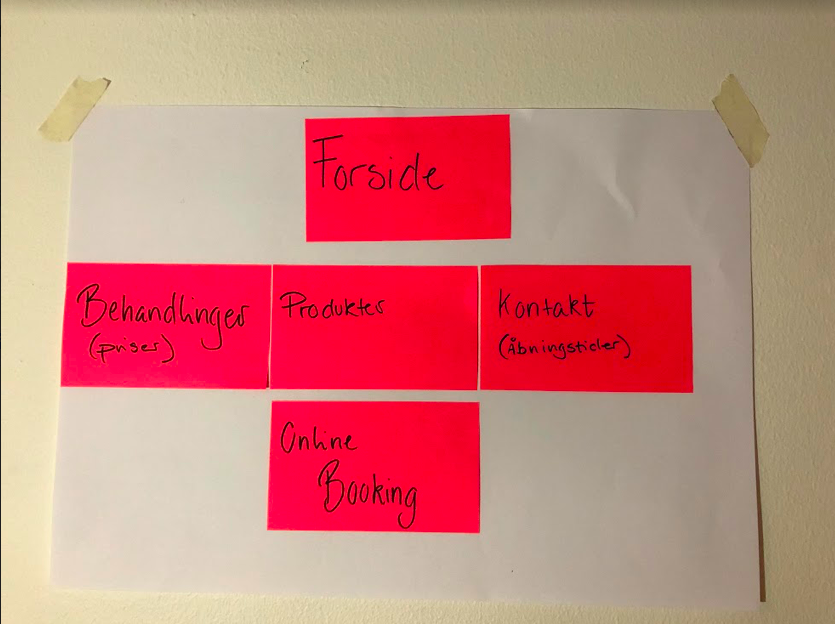 Forside
Behandlinger
(priser)
Produkter
Kontakt
(Åbningstider)
Online
Booking